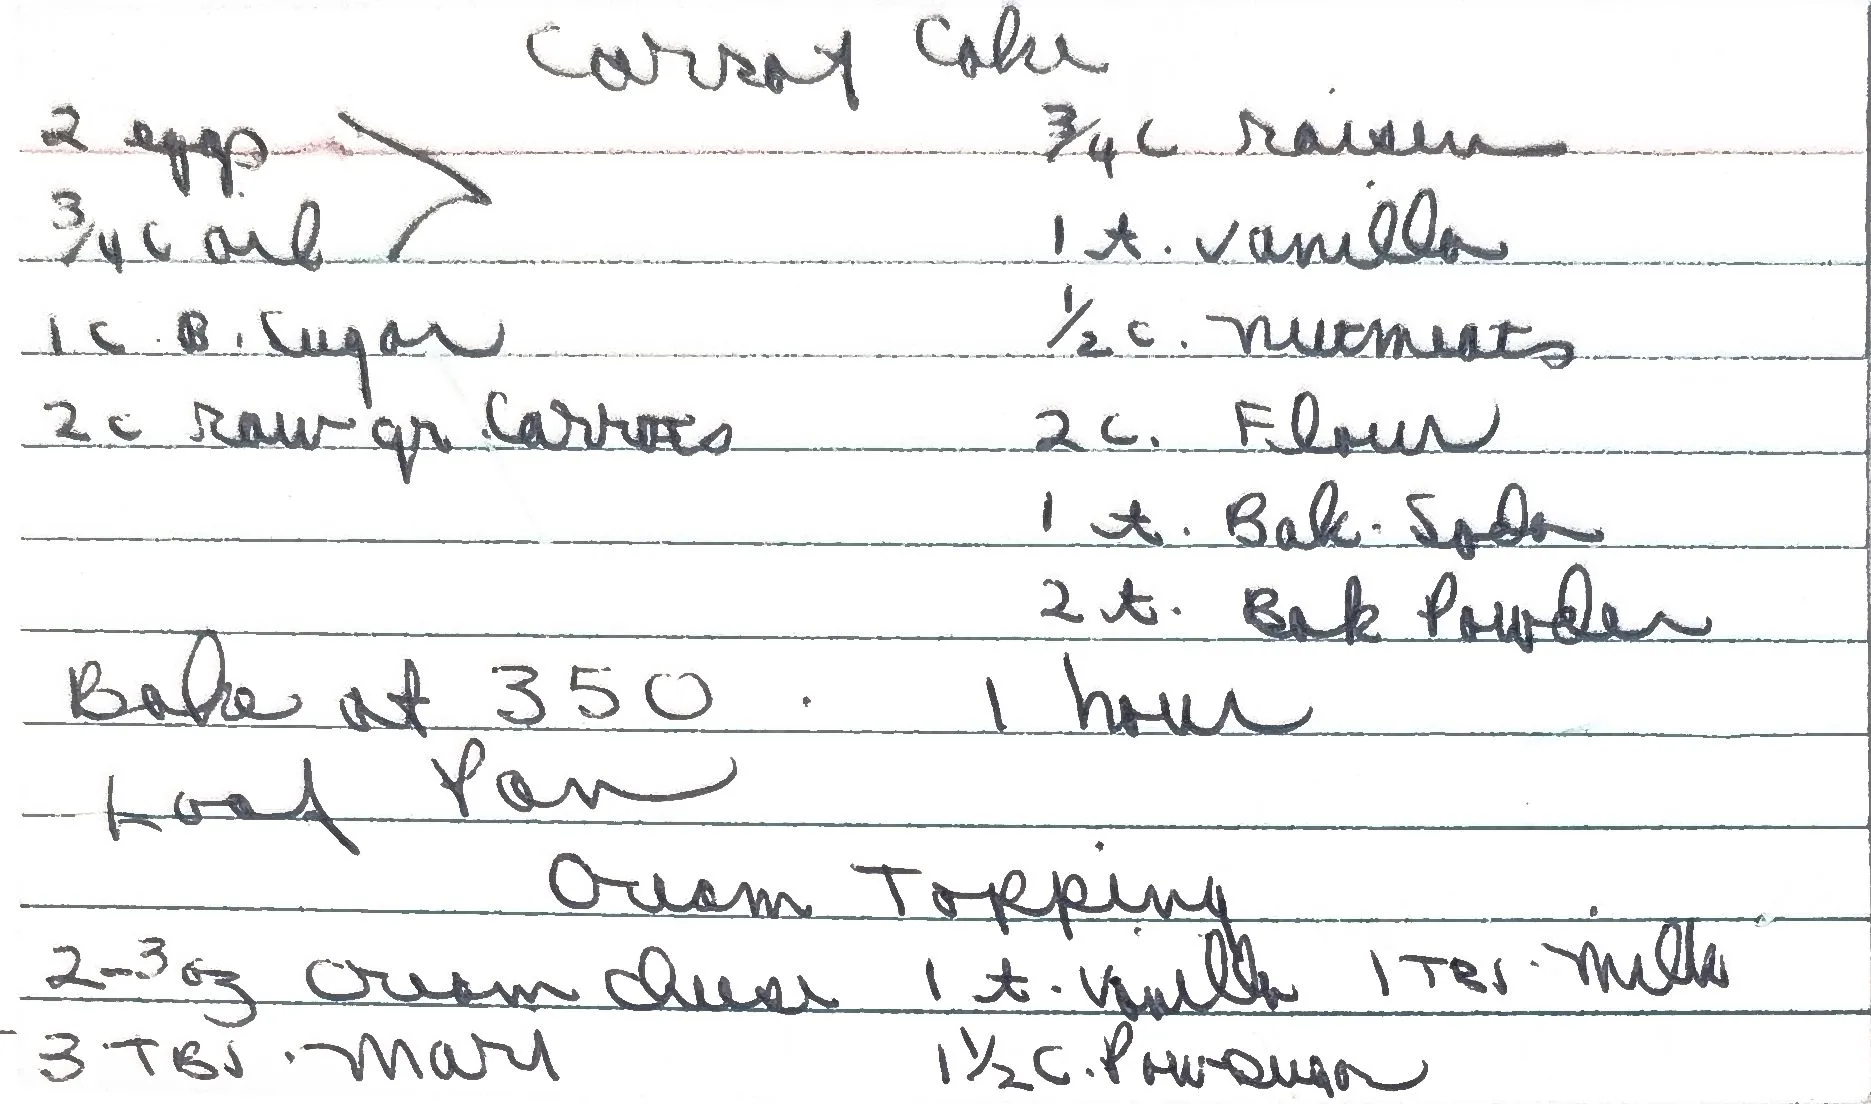 Carrot Cake
2 eggs 3/4 c raisen
3/4 c oil 1 t. vanilla
1 c. B. Sugar 1/2 c. nutmeats
2 c raw gr. Carrots 2 c. Flour
1 t. Bak. Soda
2 t. Bak Powder
Bake at 350. 1 hour
Loaf Pan
Cream Topping
2-3 oz cream cheese 1 t. vanilla 1 TBS. Milk
3 TBS. Marg 1 1/2 C. Pow Sugar